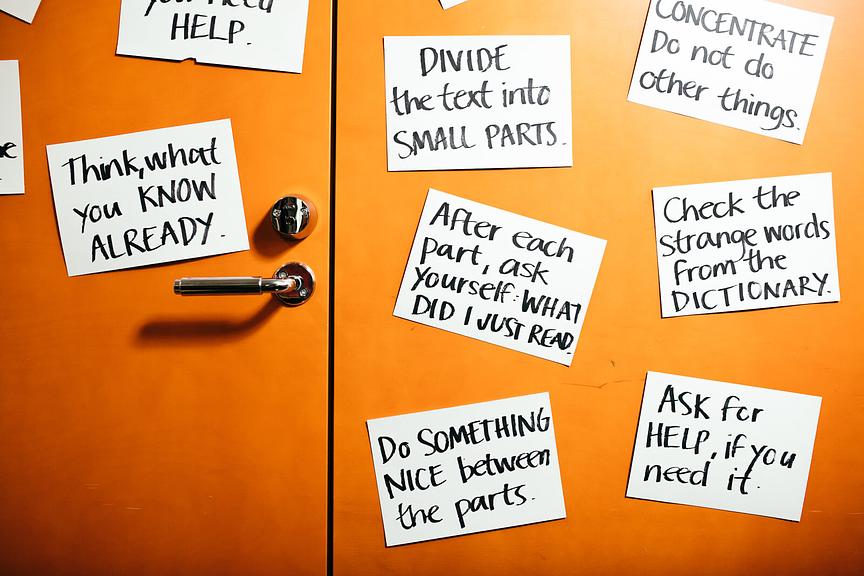 you need
HELP.
Think, what
you KNOW
ALREADY.
DIVIDE
the text into
SMALL PARTS.
CONCENTRATE
Do not do
other things.
After each
part, ask
yourself: WHAT
DID I JUST READ.
Check the
strange words
from the
DICTIONARY.
Do SOMETHING
NICE between
the parts.
ASK for
HELP, if you
need it.